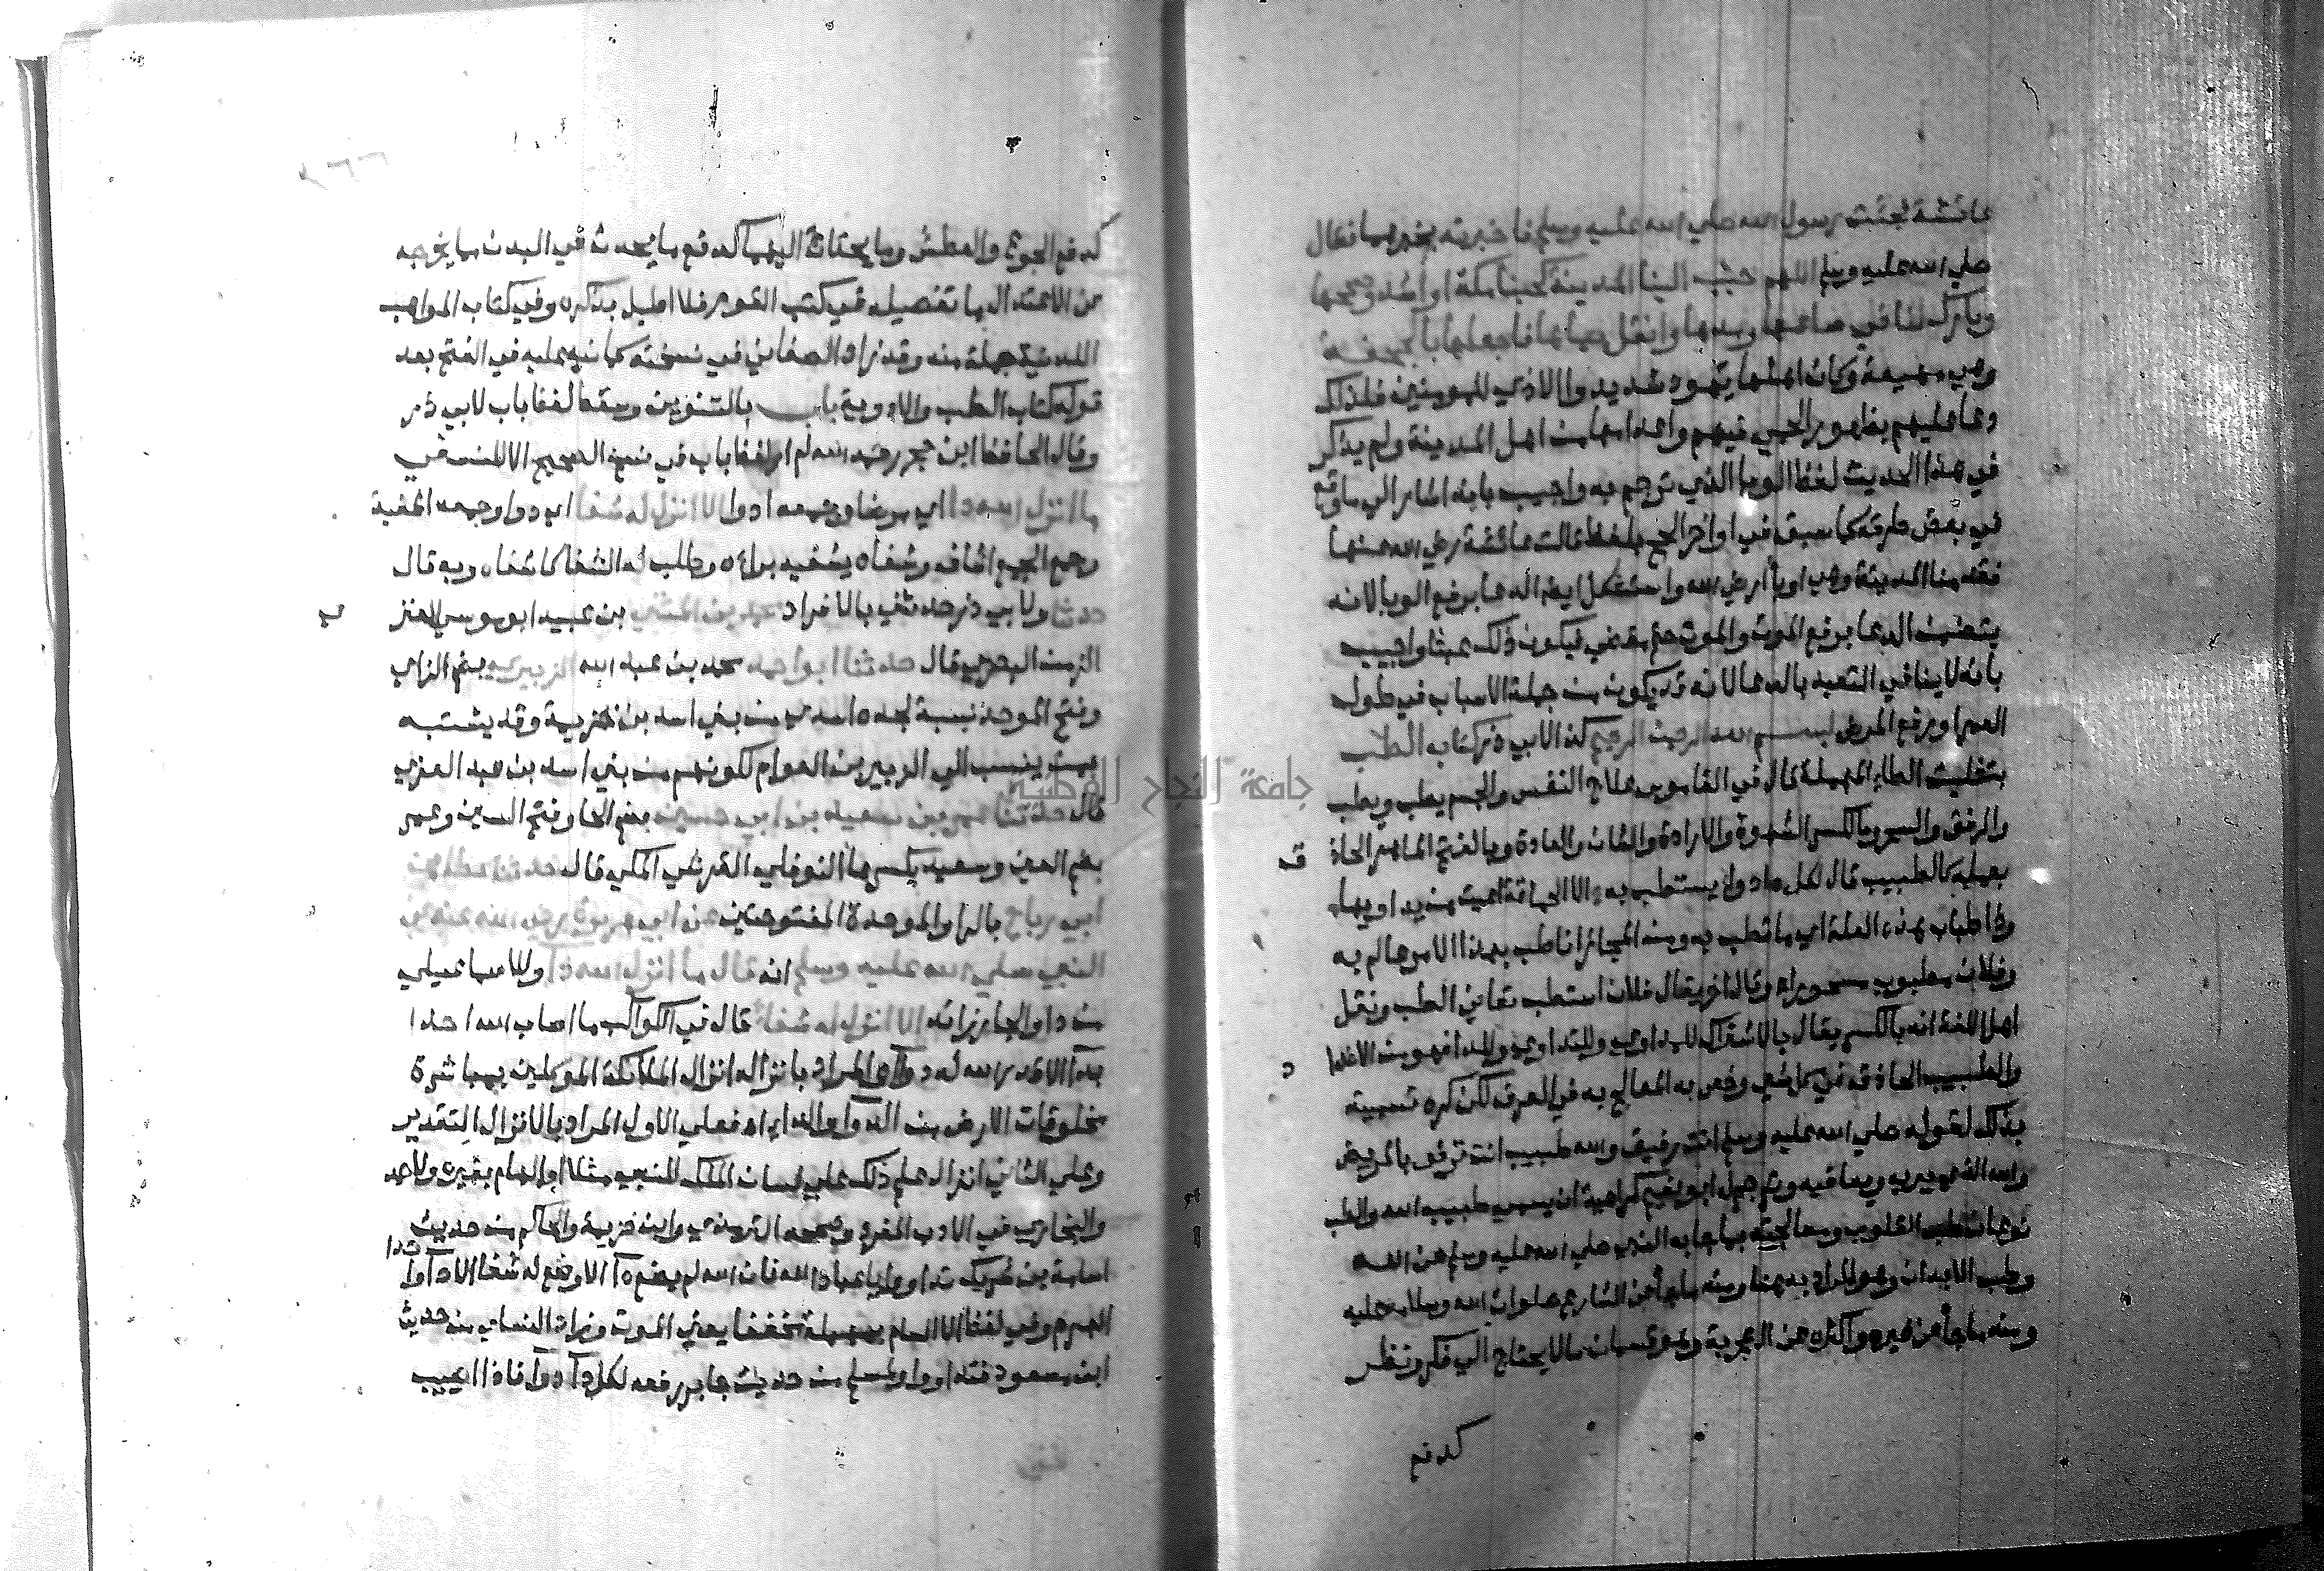 عائشة فجئت رسول الله صلي الله عليه وسلم فاخبرته بخبرهما فقال
صلي الله عليه وسلم اللهم حبب الينا المدينة كحبنا مكة او اشد وصححها
وبارك لنا في صاعها ومدها وانقل حماها فاجعلها بالجحفة
وهي مهيعة وكان اهلها يهود شديدوا الاذي للمومنين فلذلك
دعا عليهم بظهور الحمي فيهم واعدامها من اهل المدينة ولم يذكر
في هذا الحديث لفظ الوبا الذي ترجم به واجيب بانه اشار الي ما وقع
في بعض طرقه كما سبق في اواخر الحج بلفظ قالت عائشة رضي الله عنها
فقدمنا المدينة وهي اوبأ ارض الله واستشكل ايضا الدعا برفع الوبا لانه
يتضمن الدعا برفع الموت والموت حتم مقضي فيكون ذلك عبثا واجيب
بانه لا ينافي التعبد بالدعا لانه قد يكون من جملة الاسباب في طول
العمر او رفع المرض بسم الله الرحمن الرحيم كذا لابي ذر كتاب الطب
بتثليث الطاء المهملة قال في القاموس علاج النفس والجسم يطب ويطب
والرفق والسحر وبالكسر الشهوة والارادة والشان والعادة وبالفتح الماهر الحاذ ق
بعمله كالطبيب قال لكل داء دواء يستطب به الا الحماقة اعيت من يداويها
وطباب هذه العلة اي ما تطب به ومنه المجاز انا طب بهذا الامر عالم به
وفلان مطبوب مسحور اه وقال اخر يقال فلان استطب تعاني الطب ونقل
اهل اللغة انه بالكسر يقال بالاشتراك للمداوي وللتداوي وللدا فهو من الاضدا د
والطبيب الحاذق في كل شي وخص به المعالج به في العرف لكن كره تسميته
بذلك لقوله صلي الله عليه وسلم انت رفيق والله طبيب انت ترفق بالمريض
والله الذي يبريه ويعافيه وترجم له ابو نعيم كراهية ان يسمي طبيب الله والطب
نوعان طب القلوب ومعالجته بما جا به النبي صلي الله عليه وسلم عن الله
وطب الابدان وهو المراد به هنا ومنه ما جأ عن الشارع صلوات الله وسلامه عليه
ومنه ما جأ عن غيره واكثره عن التجربة وهو قسمان ما لا يحتاج الي فكر ونظر
كدفع
كدفع الجوع والعطش وما يحتاج اليهما كدفع ما يحدث في البدن مما يخرجه
عن الاعتدال مما تفصيله في كتب القوم فلا اطيل بذكره وفي كتاب المواهب
اللدنية جملة منه وقد زاد الصغاني في نسخته كما نبه عليه في الفتح بعد
قوله كتاب الطب والادوية باب بالتنوين وسقط لفظ باب لابي ذر
وقال الحافظ ابن حجر رحمه الله لم ار لفظ باب في نسخ الصحيح الا للنسفي
ما انزل الله دا اي مرضا وجمعه ادوا الا انزل له شفا اي دوا وجمعه اشفية
وجمع الجمع اشاف وشفاه يشفيه براه وطلب له الشفا كاشفاه وبه قال
حدثنا ولابي ذر حدثني بالافراد محمد بن المثني بن عبيد ابو موسي العنز ي
الزمن البصري قال حدثنا ابو احمد محمد بن عبد الله الزبيري بضم الزاي
وفتح الموحدة نسبة لجده اسدي من بني اسد بن خزيمة وقد يشتبه
بمن ينسب الي الزبير بن العوام لكونهم من بني اسد بن عبد العزي
قال حدثنا عمر بن سعيد بن ابي حسين بضم الحا وفتح السين وعمر
بضم العين وسعيد بكسرها النوفلي القرشي المكي قال حدثنا عطا بن
ابي رباح بالرا والموحدة المفتوحتين عن ابي هريرة رضي الله عنه عن
النبي صلي الله عليه وسلم انه قال ما انزل الله دآ وللاسماعيلي
من دا والجار زائد الا انزل له شفا قال في الكواكب ما اصاب الله احدا
بدآ الا قدر الله له دوآ او المراد بانزاله انزال الملائكة الموكلين بمباشرة
مخلوقات الارض من الدوآ والدا اه فعلي الاول المراد بالانزال التقدير
وعلي الثاني انزال علم ذلك علي لسان الملك للنبي مثلا او الهام بغيره ولاحمد
والبخاري في الادب المفرد وصححه الترمذي وابن خزيمة والحاكم من حديث
اسامة بن شريك تداووا يا عباد الله فان الله لم يضع دآ الا وضع له شفا الا دآ واحدا
الهرم وفي لفظ الا السام بمهملة مخففا يعني الموت وزاد النساي من حديث
ابن مسعود فتداووا ولمسلم من حديث جابر رفعه لكل دآ دوآ فاذا اصيب
جامعة النجاح الوطنية